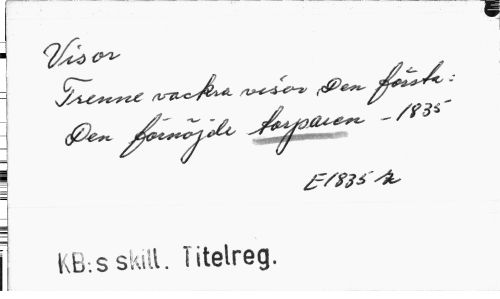 Visor
Trenne vackra visor Den första:
Den förnöjde torparen - 1835
E1835
KB:s skill. Titelreg.